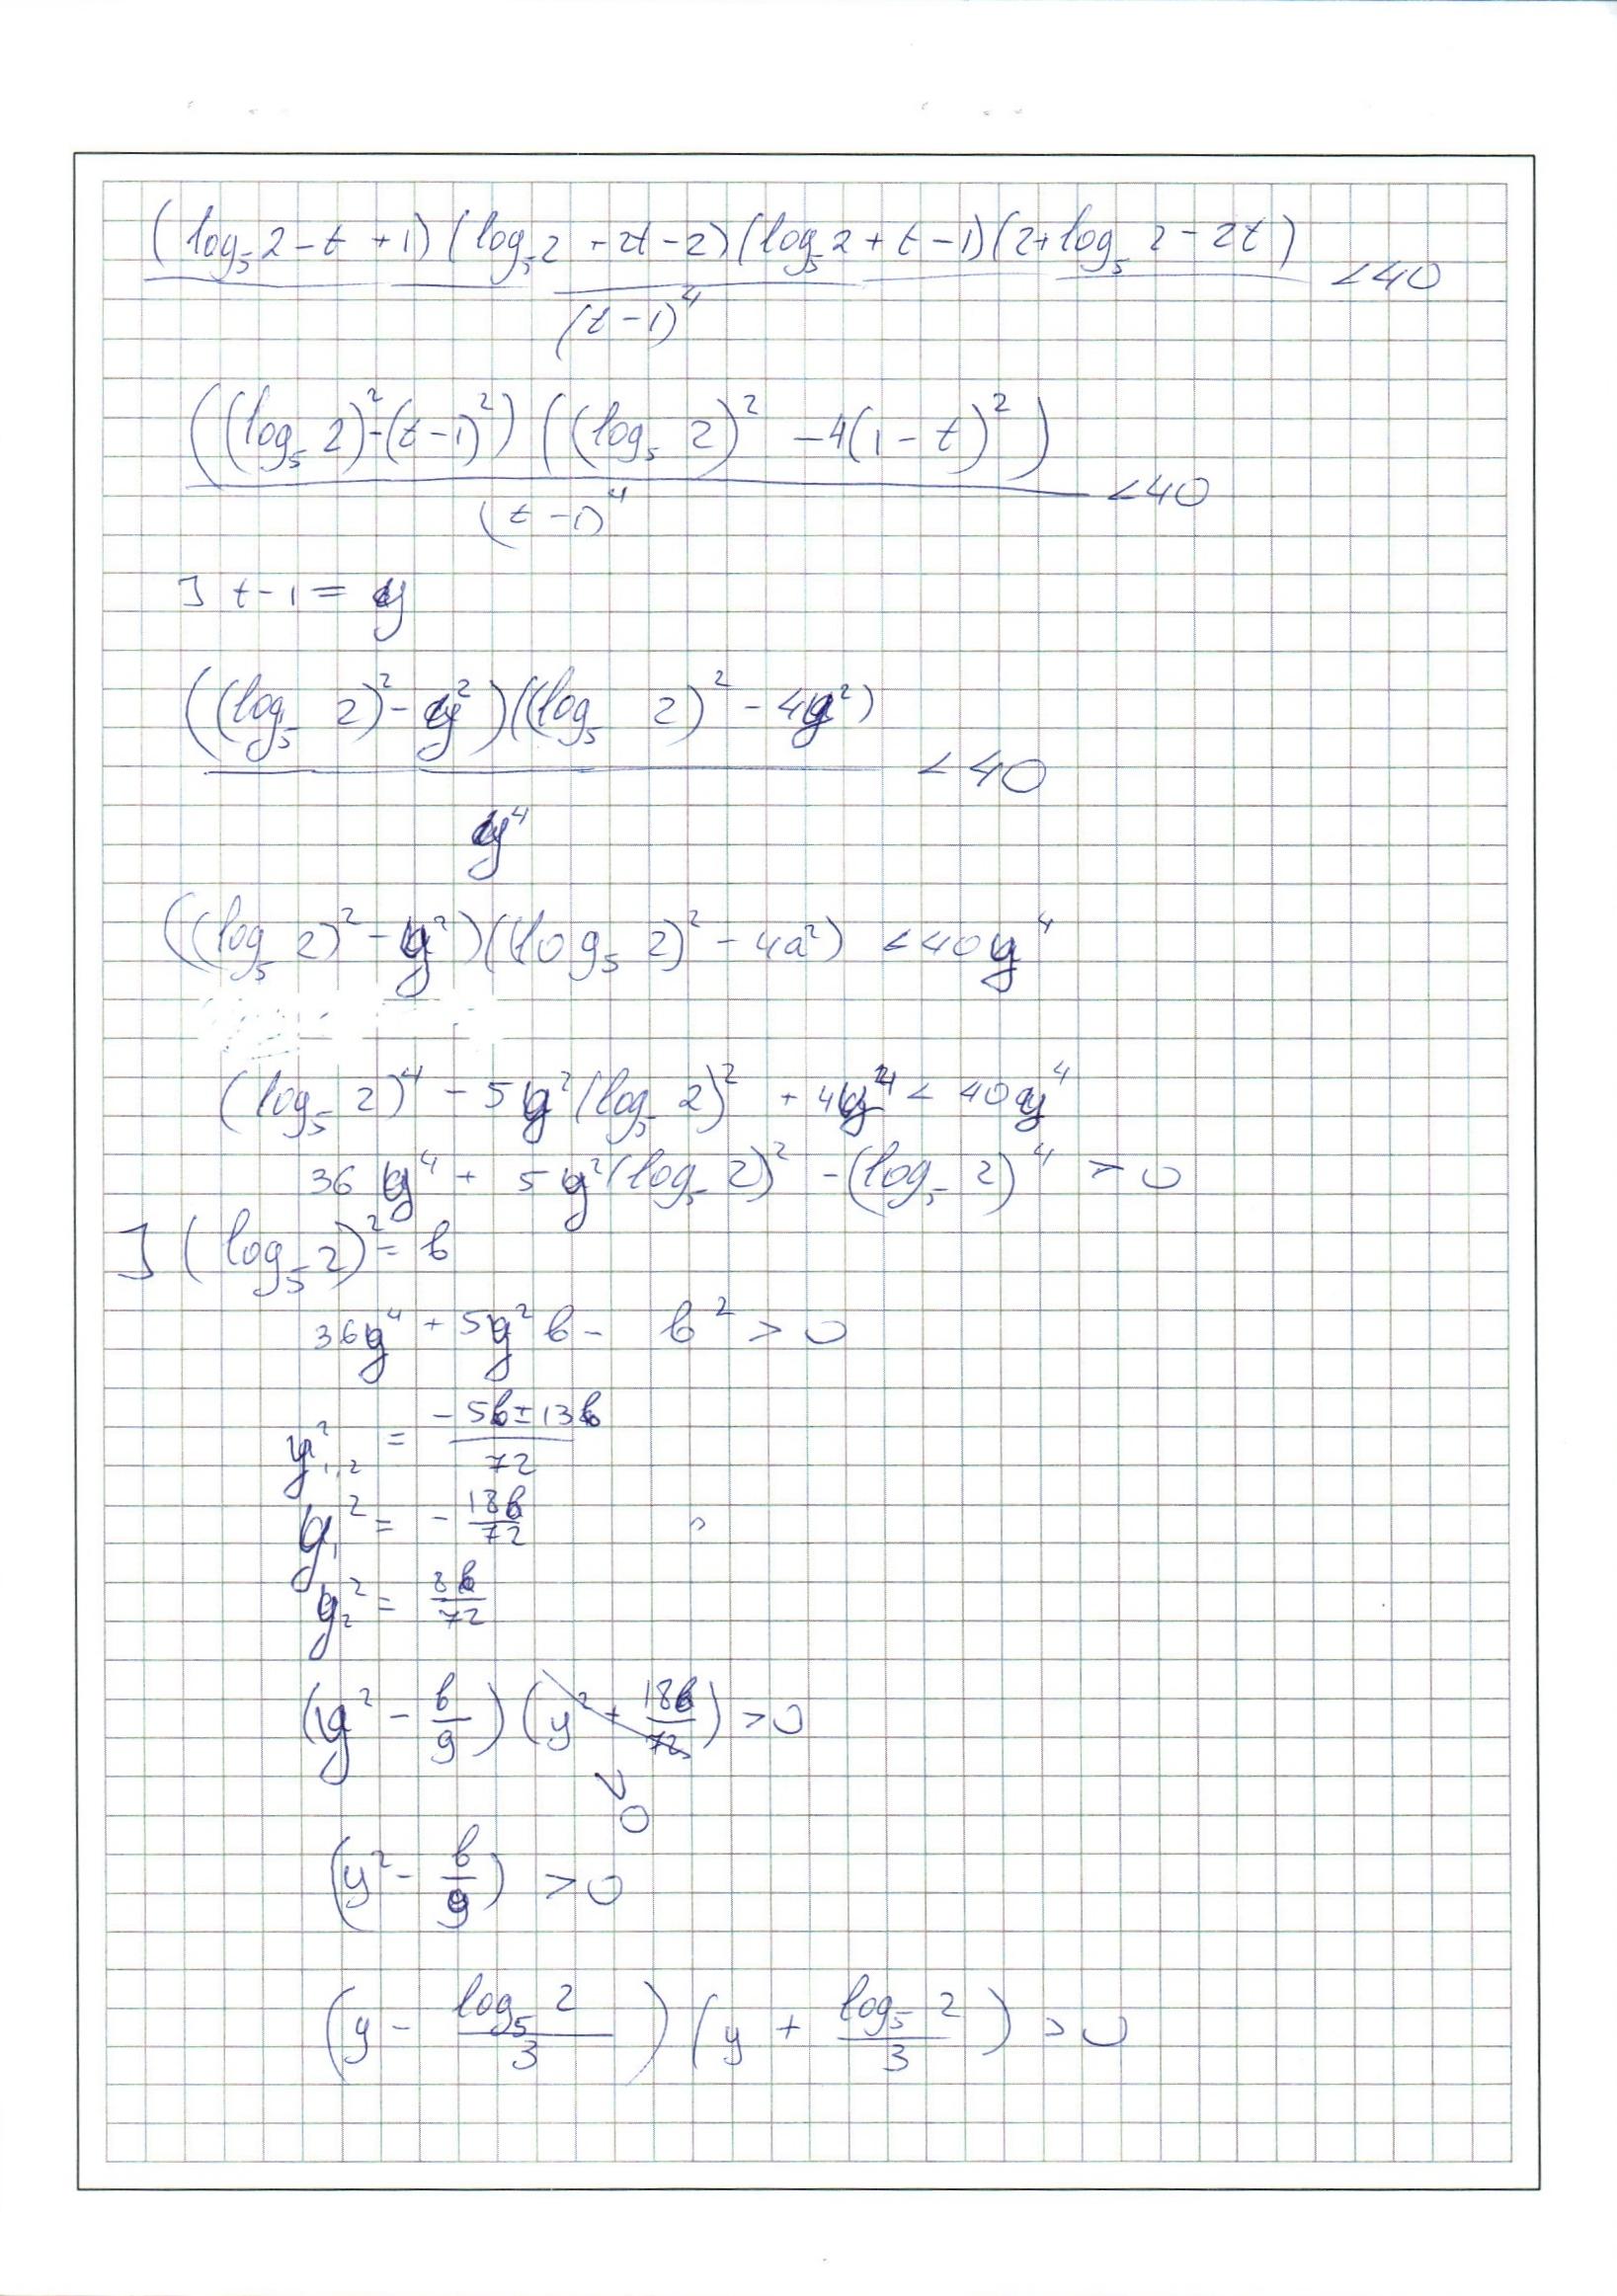 (log₅2 - t + 1)(log₅2 + 2t - 2)(log₅2 + t - 1)(2 + log₅2 - 2t) / (t - 1)⁴ < 40
((log₅2)² - (t - 1)²)((log₅2)² - 4(1 - t)²) / (t - 1)⁴ < 40
] t - 1 = y
((log₅2)² - y²)((log₅2)² - 4y²) / y⁴ < 40
((log₅2)² - y²)((log₅2)² - 4a²) < 40y⁴
(log₅2)⁴ - 5y²(log₅2)² + 4y⁴ < 40y⁴
36y⁴ + 5y²(log₅2)² - (log₅2)⁴ > 0
] (log₅2)² = b
36y⁴ + 5y²b - b² > 0
y²₁,₂ = (-5b ± 13b) / 72
y₁² = - 18b/72
y₂² = 8b/72
(y² - b/9)(y² + 18b/72) > 0
V
0
(y² - b/9) > 0
(y - log₅2 / 3)(y + log₅2 / 3) > 0